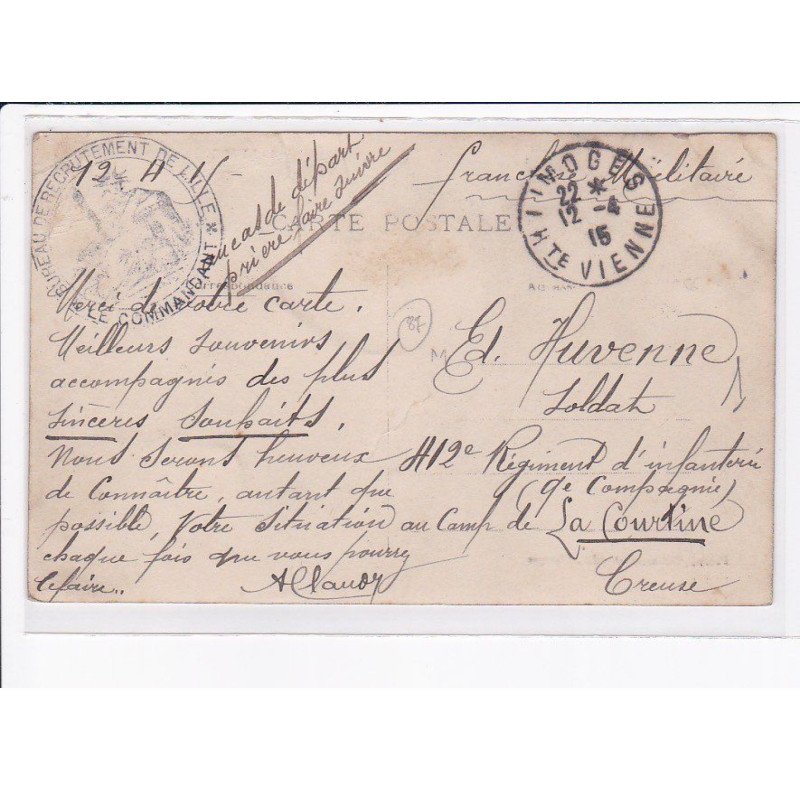 BUREAU DE RECRUTEMENT DE LILLE
LE COMMANDANT
12 4 15
en cas de départ
prière faire suivre
CARTE POSTALE
Correspondance
franchise Militaire
LIMOGES
22 *
12 -4
15
HTE VIENNE
Merci de votre carte.
Meilleurs souvenirs
accompagnés des plus
sincères souhaits.
Nous serons heureux
de Connaître, autant que
possible, Votre Situation
chaque fois que vous pourrez
le faire..
87
M
Ed. Huvenne
Soldat
412e Régiment d'infanterie
(9e Compagnie)
au Camp de La Courtine
Creuse